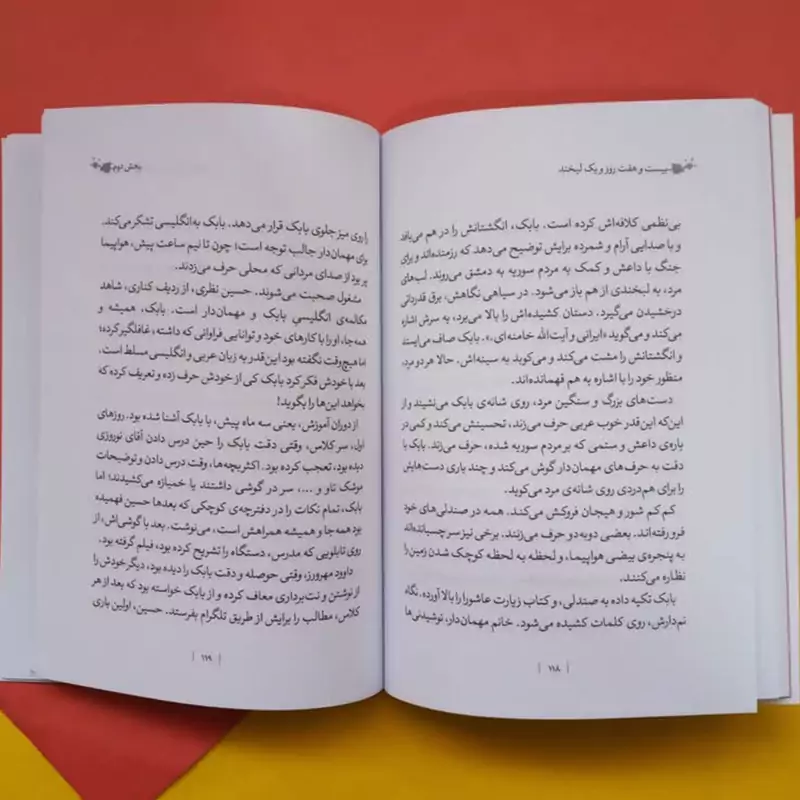 بیست و هفت روز و یک لبخند
بی‌نظمی کلافه‌اش کرده است. بابک، انگشتانش را در هم می‌بافد
و با صدایی آرام و شمرده برایش توضیح می‌دهد که رزمنده‌اند و برای
جنگ با داعش و کمک به مردم سوریه به دمشق می‌روند. لب‌های
مرد، به لبخندی از هم باز می‌شود. در سیاهی نگاهش، برق قدردانی
درخشیدن می‌گیرد. دستان کشیده‌اش را بالا می‌برد، به سرش اشاره
می‌کند و می‌گوید «ایرانی و آیت‌الله خامنه‌ای.». بابک صاف می‌ایستد
و انگشتانش را مشت می‌کند و می‌کوبد به سینه‌اش. حالا هر دو مرد،
منظور خود را با اشاره به هم فهمانده‌اند.
دست‌های بزرگ و سنگین مرد، روی شانه‌ی بابک می‌نشیند و از
این‌که این‌قدر خوب عربی حرف می‌زند، تحسینش می‌کند و کمی در
باره‌ی داعش و ستمی که بر مردم سوریه شده، حرف می‌زند. بابک با
دقت به حرف‌های مهمان‌دار گوش می‌کند و چند باری دست‌هایش
را برای هم‌دردی روی شانه‌ی مرد می‌کوبد.
کم‌کم شور و هیجان فروکش می‌کند. همه در صندلی‌های خود
فرو رفته‌اند. بعضی دوبه‌دو حرف می‌زنند. برخی نیز سر چسبانده‌اند
به پنجره‌ی بیضی هواپیما، و لحظه به لحظه کوچک شدن زمین را
نظاره می‌کنند.
بابک تکیه داده به صندلی، و کتاب زیارت عاشورا را بالا آورده. نگاه
نم‌دارش، روی کلمات کشیده می‌شود. خانم مهمان‌دار، نوشیدنی‌ها
۱۱۸
بخش دوم
را روی میز جلوی بابک قرار می‌دهد. بابک به انگلیسی تشکر می‌کند.
برای مهمان‌دار جالب توجه است؛ چون تا نیم ساعت پیش، هواپیما
پر بود از صدای مردانی که محلی حرف می‌زدند.
مشغول صحبت می‌شوند. حسین نظری، از ردیف کناری، شاهد
مکالمه‌ی انگلیسیِ بابک و مهمان‌دار است. بابک، همیشه و
همه‌جا، او را با کارهای خود و توانایی فراوانی که داشته، غافلگیر کرده؛
اما هیچ‌وقت نگفته بود این‌قدر به زبان عربی و انگلیسی مسلط است.
بعد با خودش فکر کرد بابک کی از خودش حرف زده و تعریف کرده که
بخواهد این‌ها را بگوید!
از دوران آموزش، یعنی سه ماه پیش، با بابک آشنا شده بود. روزهای
اول، سر کلاس، وقتی دقت بابک را حین درس دادن آقای نوروزی
دیده بود، تعجب کرده بود. اکثر بچه‌ها، وقت درس دادن و توضیحات
موشک تاو و ...، سر در گوشی داشتند یا خمیازه می‌کشیدند؛ اما
بابک، تمام نکات را در دفترچه‌ی کوچکی که بعدها حسین فهمیده
بود همه‌جا و همیشه همراهش است، می‌نوشت. بعد با گوشی‌اش، از
روی تابلویی که مدرس، دستگاه را تشریح کرده بود، فیلم گرفته بود.
داوود مهرورز، وقتی حوصله و دقت بابک را دیده بود، دیگر خودش را
از نوشتن و نت‌برداری معاف کرده و از بابک خواسته بود که بعد از هر
کلاس، مطالب را برایش از طریق تلگرام بفرستد. حسین، اولین باری
۱۱۹